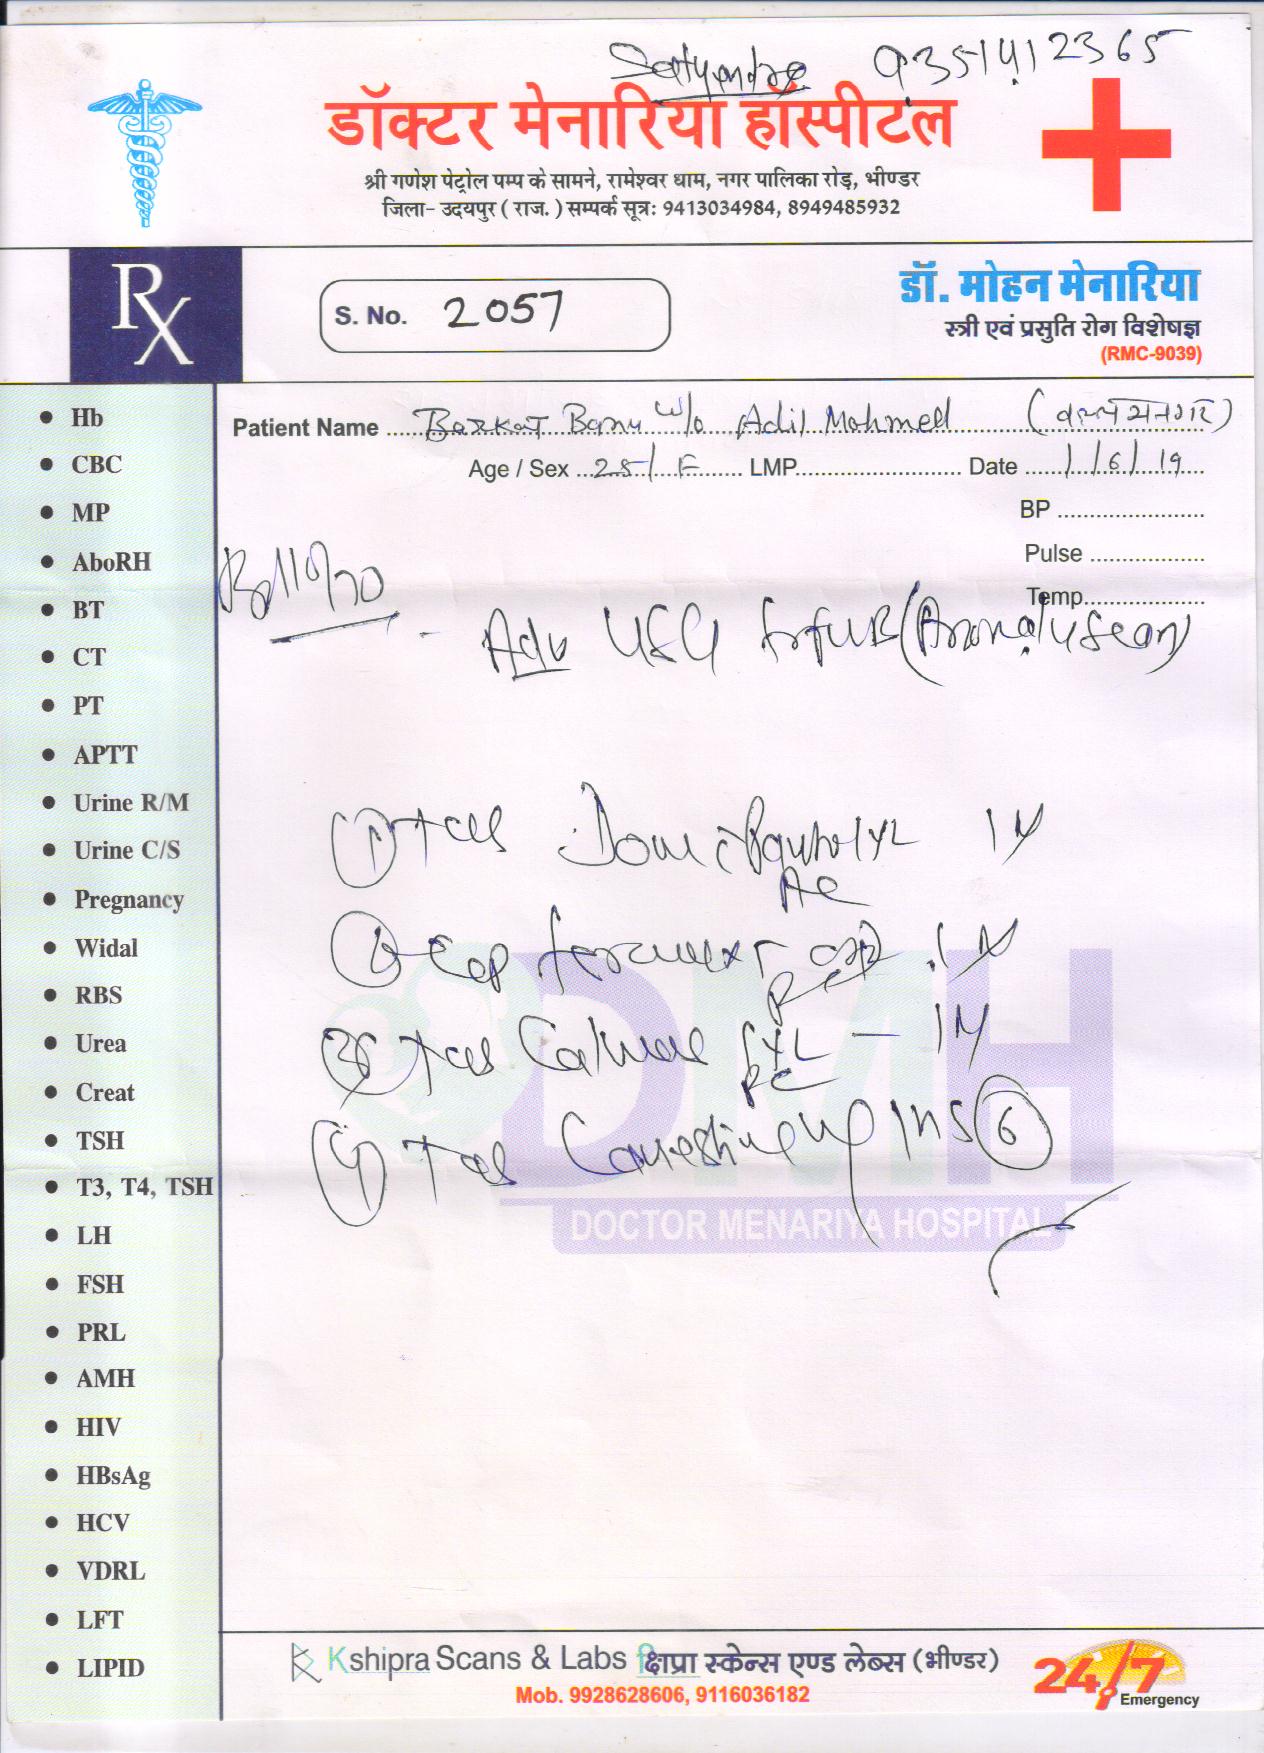 Satyendre 9351412365
डॉक्टर मेनारिया हॉस्पीटल
श्री गणेश पेट्रोल पम्प के सामने, रामेश्वर धाम, नगर पालिका रोड़, भीण्डर
जिला- उदयपुर ( राज. ) सम्पर्क सूत्र: 9413034984, 8949485932
RX
S. No. 2057
डॉ. मोहन मेनारिया
स्त्री एवं प्रसुति रोग विशेषज्ञ
(RMC-9039)
Patient Name Barkat Banu w/o Adil Mohmed
Age / Sex 25/ F LMP Date 1/6/19
BP
Pulse
Temp
110/70
Adv USG (Anomaly Scan)
1 Tab
AC
Cap
Tab
Tab
6
• Hb
• CBC
• MP
• AboRH
• BT
• CT
• PT
• APTT
• Urine R/M
• Urine C/S
• Pregnancy
• Widal
• RBS
• Urea
• Creat
• TSH
• T3, T4, TSH
• LH
• FSH
• PRL
• AMH
• HIV
• HBsAg
• HCV
• VDRL
• LFT
• LIPID
DMH
DOCTOR MENARIYA HOSPITAL
Kshipra Scans & Labs क्षिप्रा स्केन्स एण्ड लेब्स (भीण्डर)
Mob. 9928628606, 9116036182
24/7
Emergency